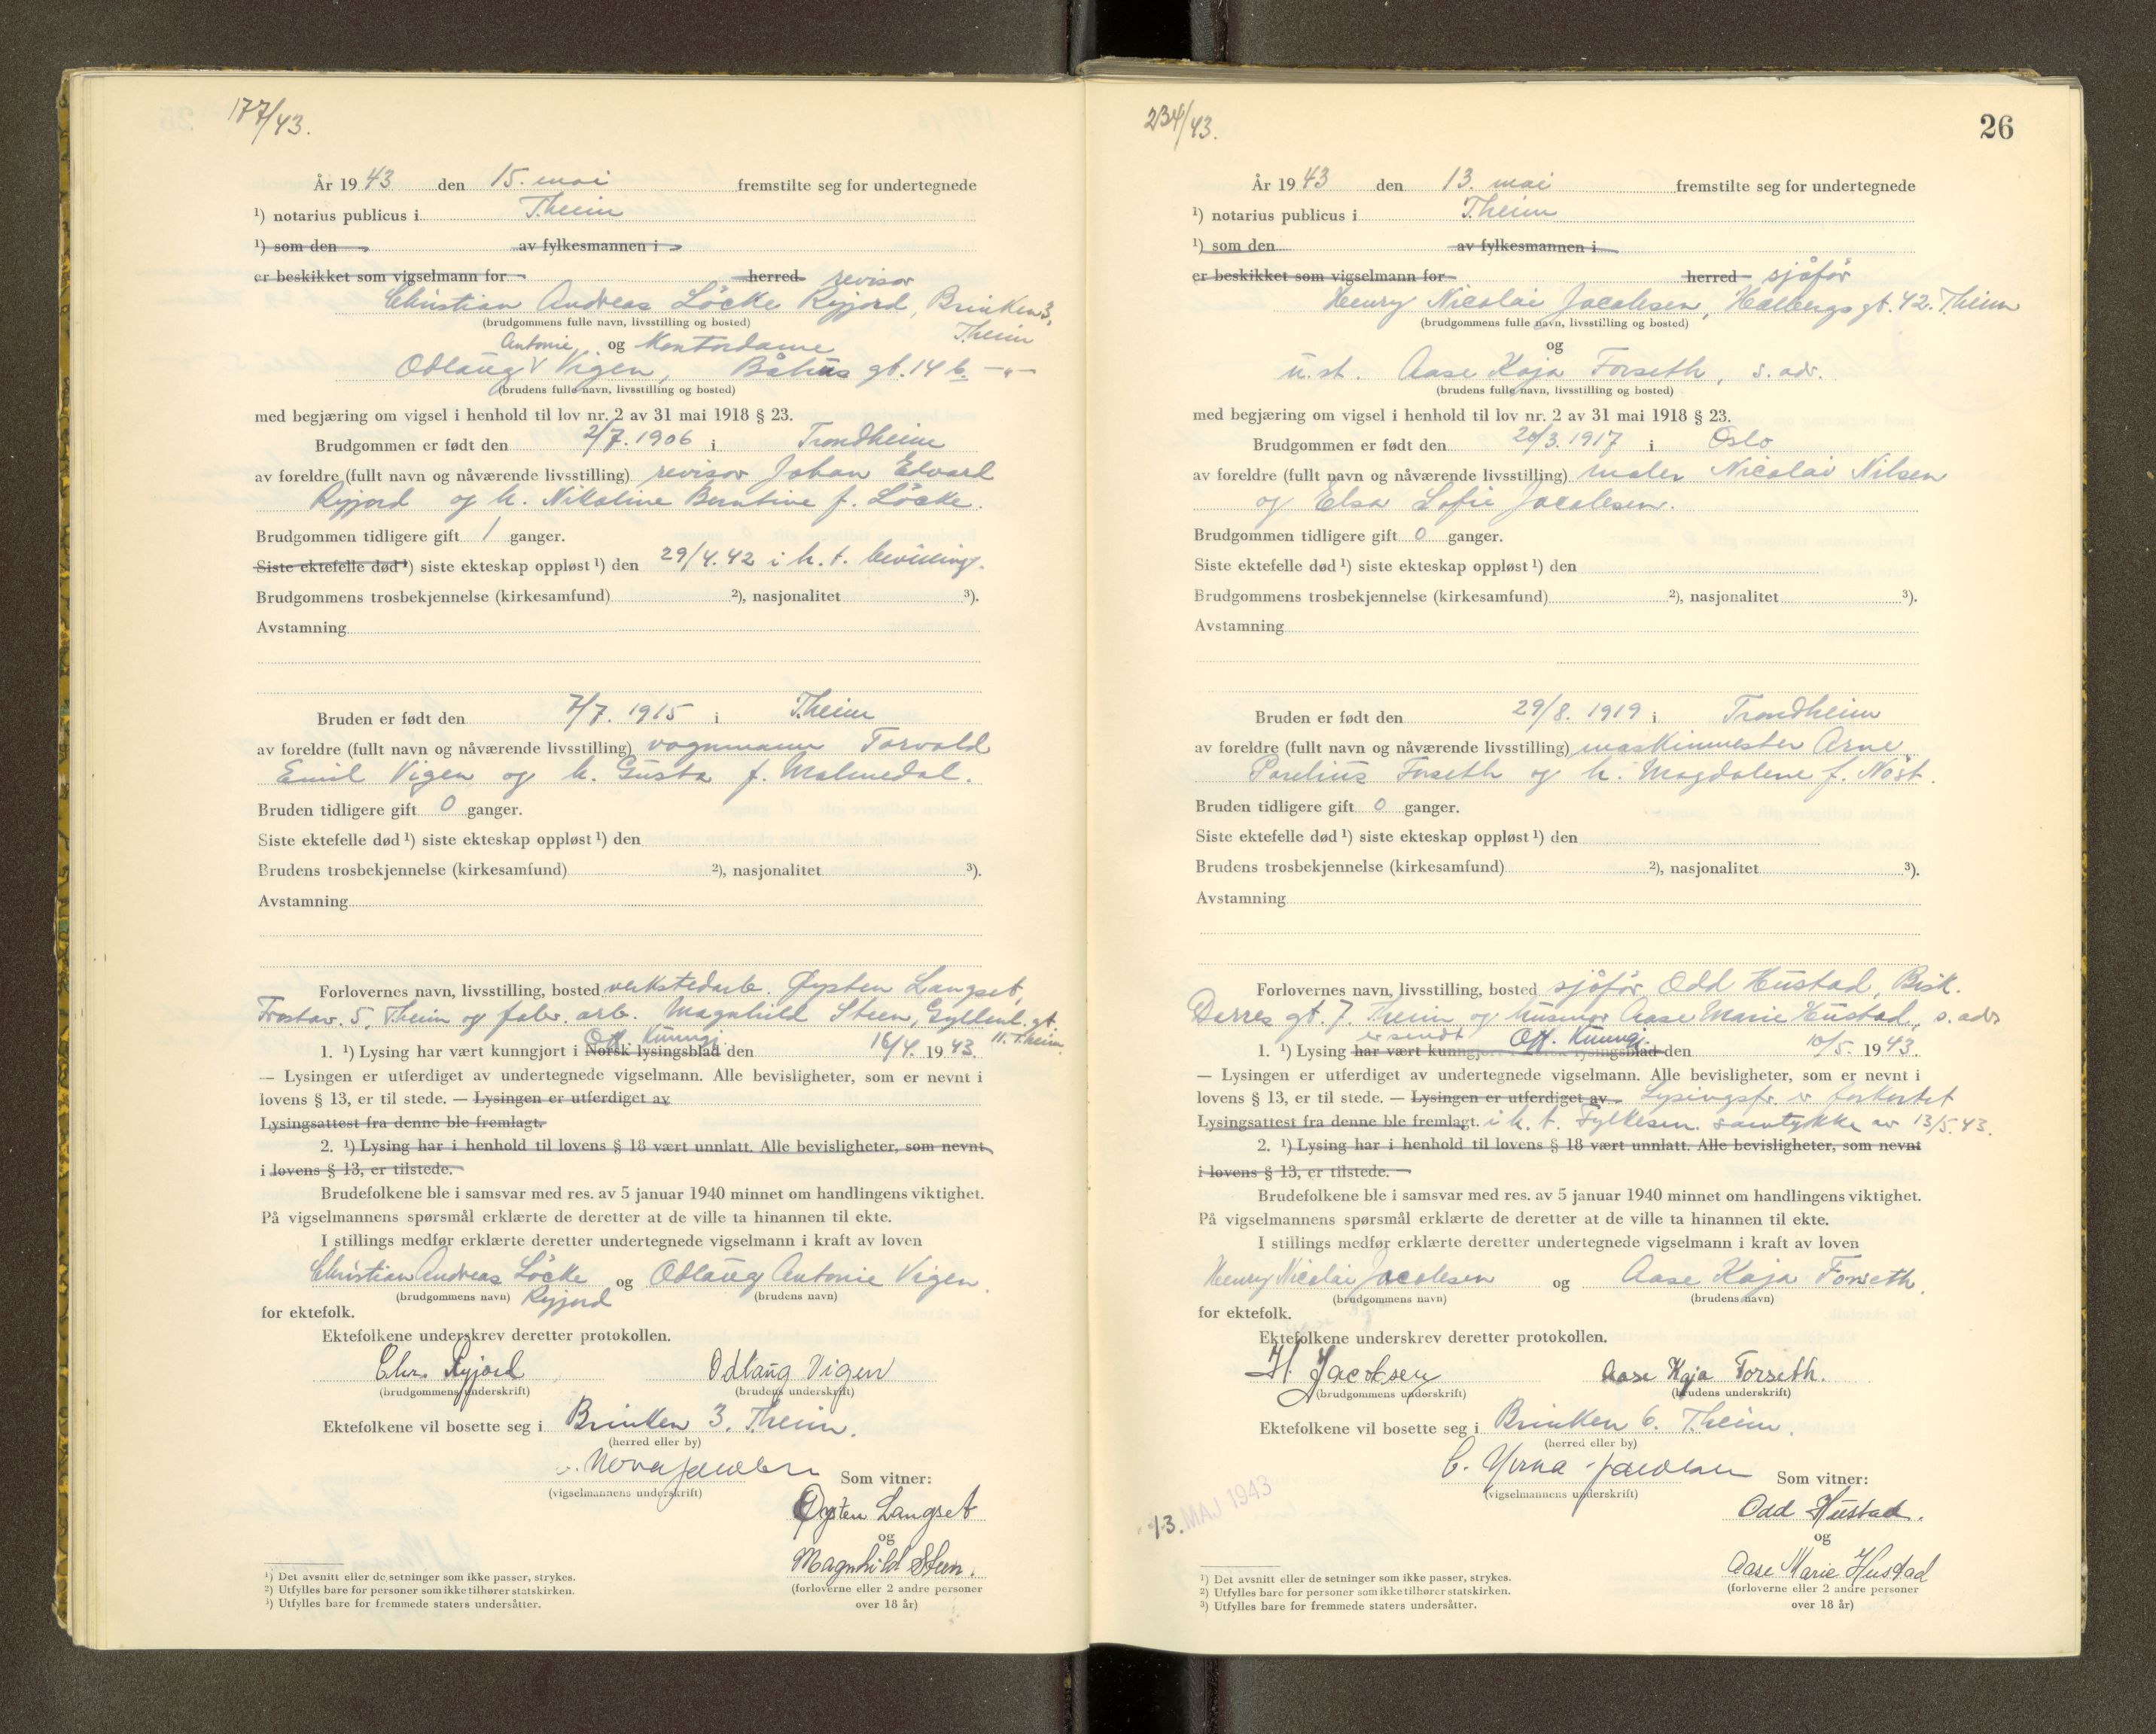 177/43.
År 1943 den 15. mai fremstilte seg for undertegnede
¹) notarius publicus i T.heim
¹) som den av fylkesmannen i
er beskikket som vigselmann for herred revisor
Christian Andreas Löcke Ryjord, Brinken 3,
(brudgommens fulle navn, livsstilling og bosted) T.heim
Antonie og Kontordame
Odlaug V Vigen, Båhus gt. 14 b. -"-
(brudens fulle navn, livsstilling og bosted)
med begjæring om vigsel i henhold til lov nr. 2 av 31 mai 1918 § 23.
Brudgommen er født den 2/7. 1906 i Trondheim
av foreldre (fullt navn og nåværende livsstilling) revisor Johan Edvard
Ryjord og h. Nikoline Berntine f. Löcke.
Brudgommen tidligere gift 1 ganger.
Siste ektefelle død ¹) siste ekteskap oppløst ¹) den 29/4.42 i h. t. bevilling.
Brudgommens trosbekjennelse (kirkesamfund) ²), nasjonalitet ³).
Avstamning
Bruden er født den 7/7. 1915 i T.heim
av foreldre (fullt navn og nåværende livsstilling) vognmann Torvald
Emil Vigen og h. Gusta f. Malmedal.
Bruden tidligere gift 0 ganger.
Siste ektefelle død ¹) siste ekteskap oppløst ¹) den
Brudens trosbekjennelse (kirkesamfund) ²), nasjonalitet ³).
Avstamning
Forlovernes navn, livsstilling, bosted verkstedarb. Øysten Langset,
Frostav. 5, T.heim og fabr. arb. Magnhild Steen, Gyldenl. gt.
Off. Kunngj. 11. T.heim.
1. ¹) Lysing har vært kunngjort i Norsk lysingsblad den 16/4. 1943.
— Lysingen er utferdiget av undertegnede vigselmann. Alle bevisligheter, som er nevnt i
lovens § 13, er til stede. — Lysingen er utferdiget av
Lysingsattest fra denne ble fremlagt.
2. ¹) Lysing har i henhold til lovens § 18 vært unnlatt. Alle bevisligheter, som nevnt
i lovens § 13, er tilstede.
Brudefolkene ble i samsvar med res. av 5 januar 1940 minnet om handlingens viktighet.
På vigselmannens spørsmål erklærte de deretter at de ville ta hinannen til ekte.
I stillings medfør erklærte deretter undertegnede vigselmann i kraft av loven
Christian Andreas Löcke og Odlaug Antonie Vigen.
(brudgommens navn) Ryjord (brudens navn)
for ektefolk.
Ektefolkene underskrev deretter protokollen.
Chr. Ryjord Odlaug Vigen
(brudgommens underskrift) (brudens underskrift)
Ektefolkene vil bosette seg i Brinken 3. T.heim.
(herred eller by)
Som vitner:
(vigselmannens underskrift)
Øysten Langset
og
Magnhild Steen.
(forloverne eller 2 andre personer
over 18 år)
¹) Det avsnitt eller de setninger som ikke passer, strykes.
²) Utfylles bare for personer som ikke tilhører statskirken.
³) Utfylles bare for fremmede staters undersåtter.
234/43.
26
År 1943 den 13. mai fremstilte seg for undertegnede
¹) notarius publicus i T.heim
¹) som den av fylkesmannen i
er beskikket som vigselmann for herred sjåfør
Henry Nicolai Jacobsen, Halbergs gt. 42. T.heim
(brudgommens fulle navn, livsstilling og bosted)
og
u. st. Aase Kaja Forseth, s. adr.
(brudens fulle navn, livsstilling og bosted)
med begjæring om vigsel i henhold til lov nr. 2 av 31 mai 1918 § 23.
Brudgommen er født den 20/3. 1917 i Oslo
av foreldre (fullt navn og nåværende livsstilling) maler Nicolai Nilsen
og Elsa Sofie Jacobsen.
Brudgommen tidligere gift 0 ganger.
Siste ektefelle død ¹) siste ekteskap oppløst ¹) den
Brudgommens trosbekjennelse (kirkesamfund) ²), nasjonalitet ³).
Avstamning
Bruden er født den 29/8. 1919 i Trondheim
av foreldre (fullt navn og nåværende livsstilling) maskinmester Arne
Parelius Forseth og h. Magdalene f. Nöst.
Bruden tidligere gift 0 ganger.
Siste ektefelle død ¹) siste ekteskap oppløst ¹) den
Brudens trosbekjennelse (kirkesamfund) ²), nasjonalitet ³).
Avstamning
Forlovernes navn, livsstilling, bosted sjåfør Odd Hustad, Bisk.
Darres gt. 7. T.heim og husmor Aase Marie Hustad, s. adr.
er sendt Off. Kunngj.
1. ¹) Lysing har vært kunngjort i Norsk lysingsblad den 10/5. 1943.
— Lysingen er utferdiget av undertegnede vigselmann. Alle bevisligheter, som er nevnt i
lovens § 13, er til stede. — Lysingen er utferdiget av Lysingsfr. er forkortet
Lysingsattest fra denne ble fremlagt. i h. t. Fylkesm. samtykke av 13/5.43.
2. ¹) Lysing har i henhold til lovens § 18 vært unnlatt. Alle bevisligheter, som nevnt
i lovens § 13, er tilstede.
Brudefolkene ble i samsvar med res. av 5 januar 1940 minnet om handlingens viktighet.
På vigselmannens spørsmål erklærte de deretter at de ville ta hinannen til ekte.
I stillings medfør erklærte deretter undertegnede vigselmann i kraft av loven
Henry Nicolai Jacobsen og Aase Kaja Forseth.
(brudgommens navn) (brudens navn)
for ektefolk.
Ektefolkene underskrev deretter protokollen.
H. Jacobsen Aase Kaja Forseth.
(brudgommens underskrift) (brudens underskrift)
Ektefolkene vil bosette seg i Brinken 6. T.heim.
(herred eller by)
Som vitner:
(vigselmannens underskrift)
13. MAJ 1943
Odd Hustad.
og
Aase Marie Hustad
(forloverne eller 2 andre personer
over 18 år)
¹) Det avsnitt eller de setninger som ikke passer, strykes.
²) Utfylles bare for personer som ikke tilhører statskirken.
³) Utfylles bare for fremmede staters undersåtter.